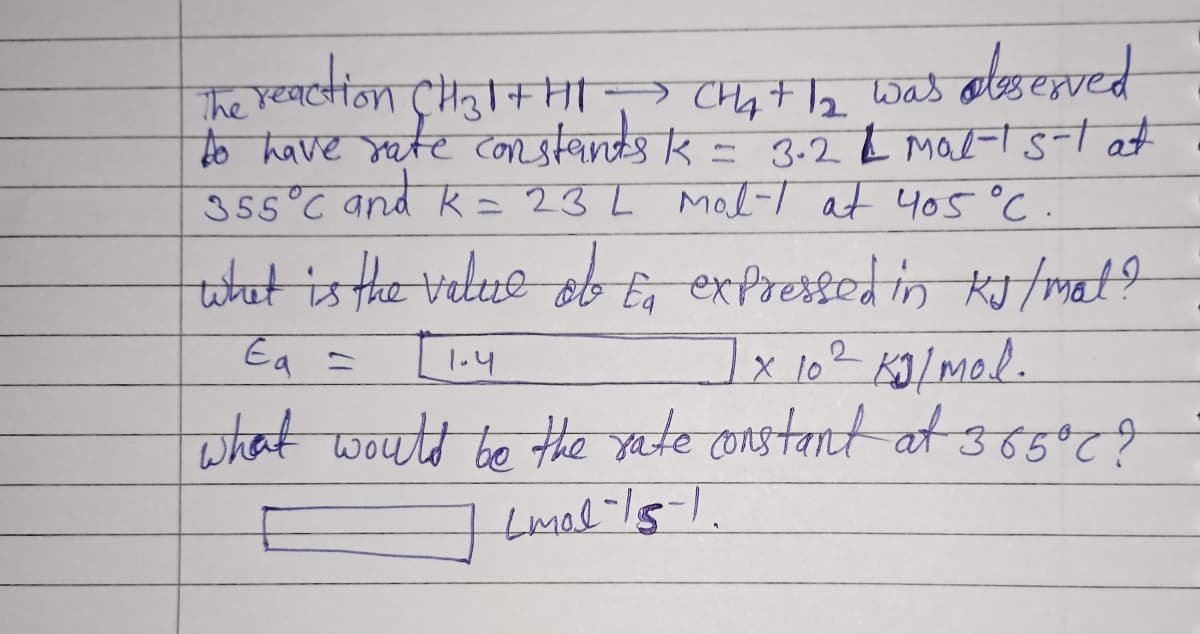 The reaction CH3I + HI → CH4 + I2 was observed
to have rate constants k = 3.2 L mol-1 s-1 at
355°C and k = 23 L mol-1 at 405 °C.
whet is the value of Ea expressed in KJ/mol?
Ea = [1.4] x 10² KJ/mol.
what would be the rate constant at 365°C?
[ ] Lmol-1s-1.